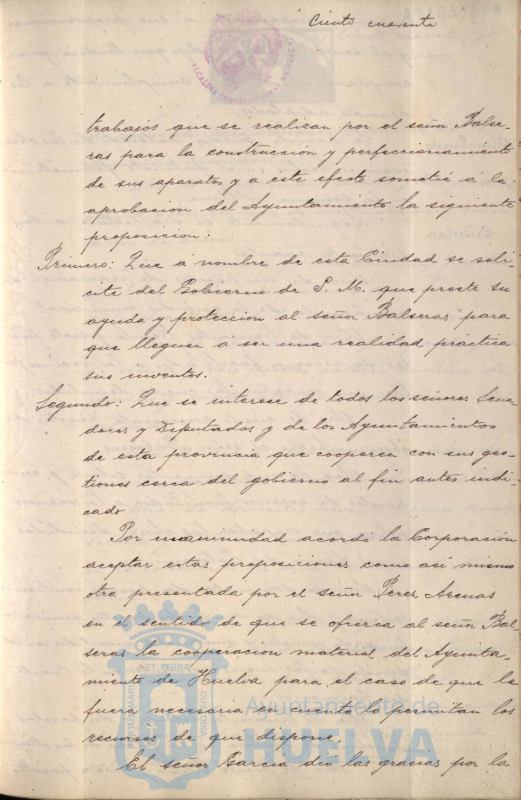 Ciento cuarenta
trabajos que se realizan por el señor Balse-
ras para la construcción y perfeccionamiento
de sus aparatos y á este efecto sometió á la
aprobacion del Ayuntamiento la siguiente
proposicion:
Primero: Que á nombre de esta Ciudad se soli-
cite del Gobierno de S. M. que preste su
ayuda y proteccion al señor Balseras para
que lleguen á ser una realidad práctica
sus inventos.
Segundo: Que se interese de todos los señores Sena-
dores y Diputados y de los Ayuntamientos
de esta provincia que cooperen con sus ges-
tiones cerca del gobierno al fin antes indi-
cado
Por unanimidad acordó la Corporación
aceptar estas proposiciones como asi mismo
otra presentada por el señor Perez Arenas
en el sentido de que se ofrezca al señor Bal-
seras la cooperacion material del Ayunta-
miento de Huelva para el caso de que le
fuera necesaria en cuanto lo permitan los
recursos de que dispone.
El señor Garcia dió las gracias por la
PORTUS MARIS
ET TERRÆ
CUSTODIA
Ayuntamiento de
HUELVA